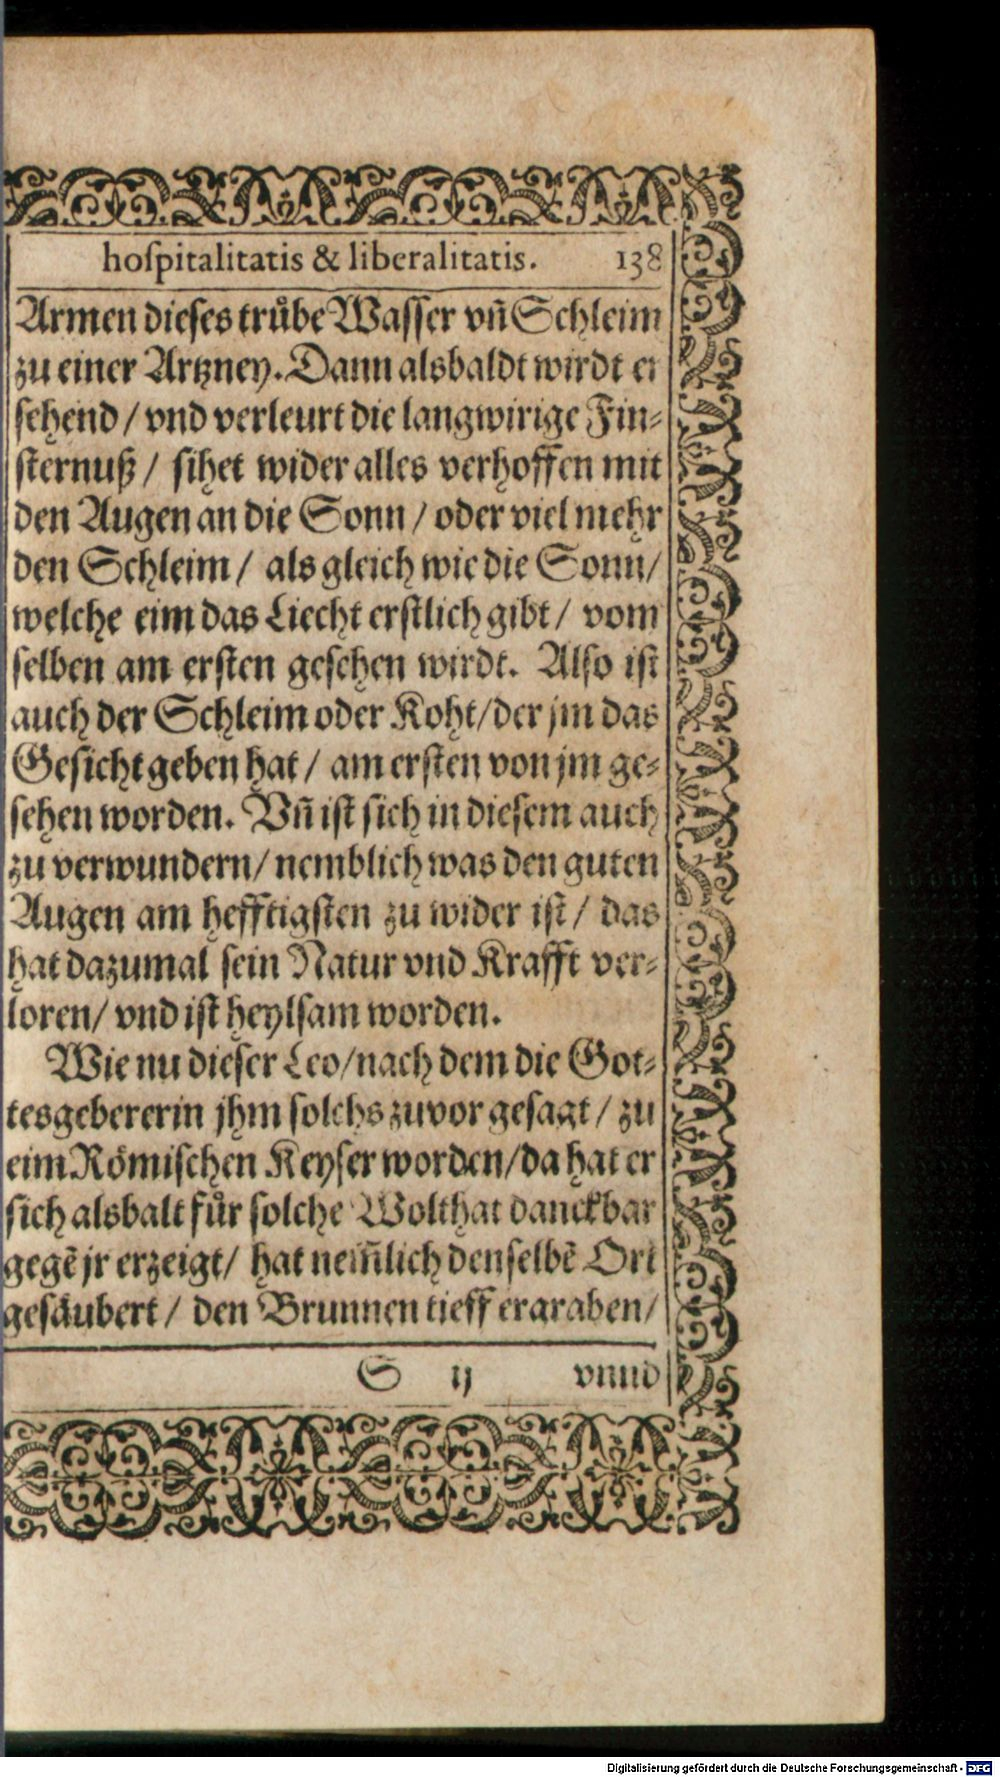 hoſpitalitatis & liberalitatis. 138
Armen dieſes truͤbe Waſſer vñ Schleim
zu einer Artzney. Dann alsbaldt wirdt er
ſehend / vnd verleurt die langwirige Fin⸗
ſternuß / ſihet wider alles verhoffen mit
den Augen an die Sonn / oder viel mehr
den Schleim / als gleich wie die Sonn /
welche eim das Liecht erſtlich gibt / vom
ſelben am erſten geſehen wirdt. Alſo iſt
auch der Schleim oder Koht / der jm das
Geſicht geben hat / am erſten von jm ge⸗
ſehen worden. Vñ iſt ſich in dieſem auch
zu verwundern / nemblich was den guten
Augen am hefftigſten zu wider iſt / das
hat dazumal ſein Natur vnd Krafft ver⸗
loren / vnd iſt heylſam worden.
Wie nu dieſer Leo / nach dem die Got⸗
tesgebererin jhm ſolchs zuvor geſagt / zu
eim Roͤmiſchen Keyſer worden / da hat er
ſich alsbalt fuͤr ſolche Wolthat danckbar
gegē jr erzeigt / hat nem̃lich denſelbē Ort
geſaͤubert / den Brunnen tieff ergraben /
S ij vnnd
Digitalisierung gefördert durch die Deutsche Forschungsgemeinschaft - DFG